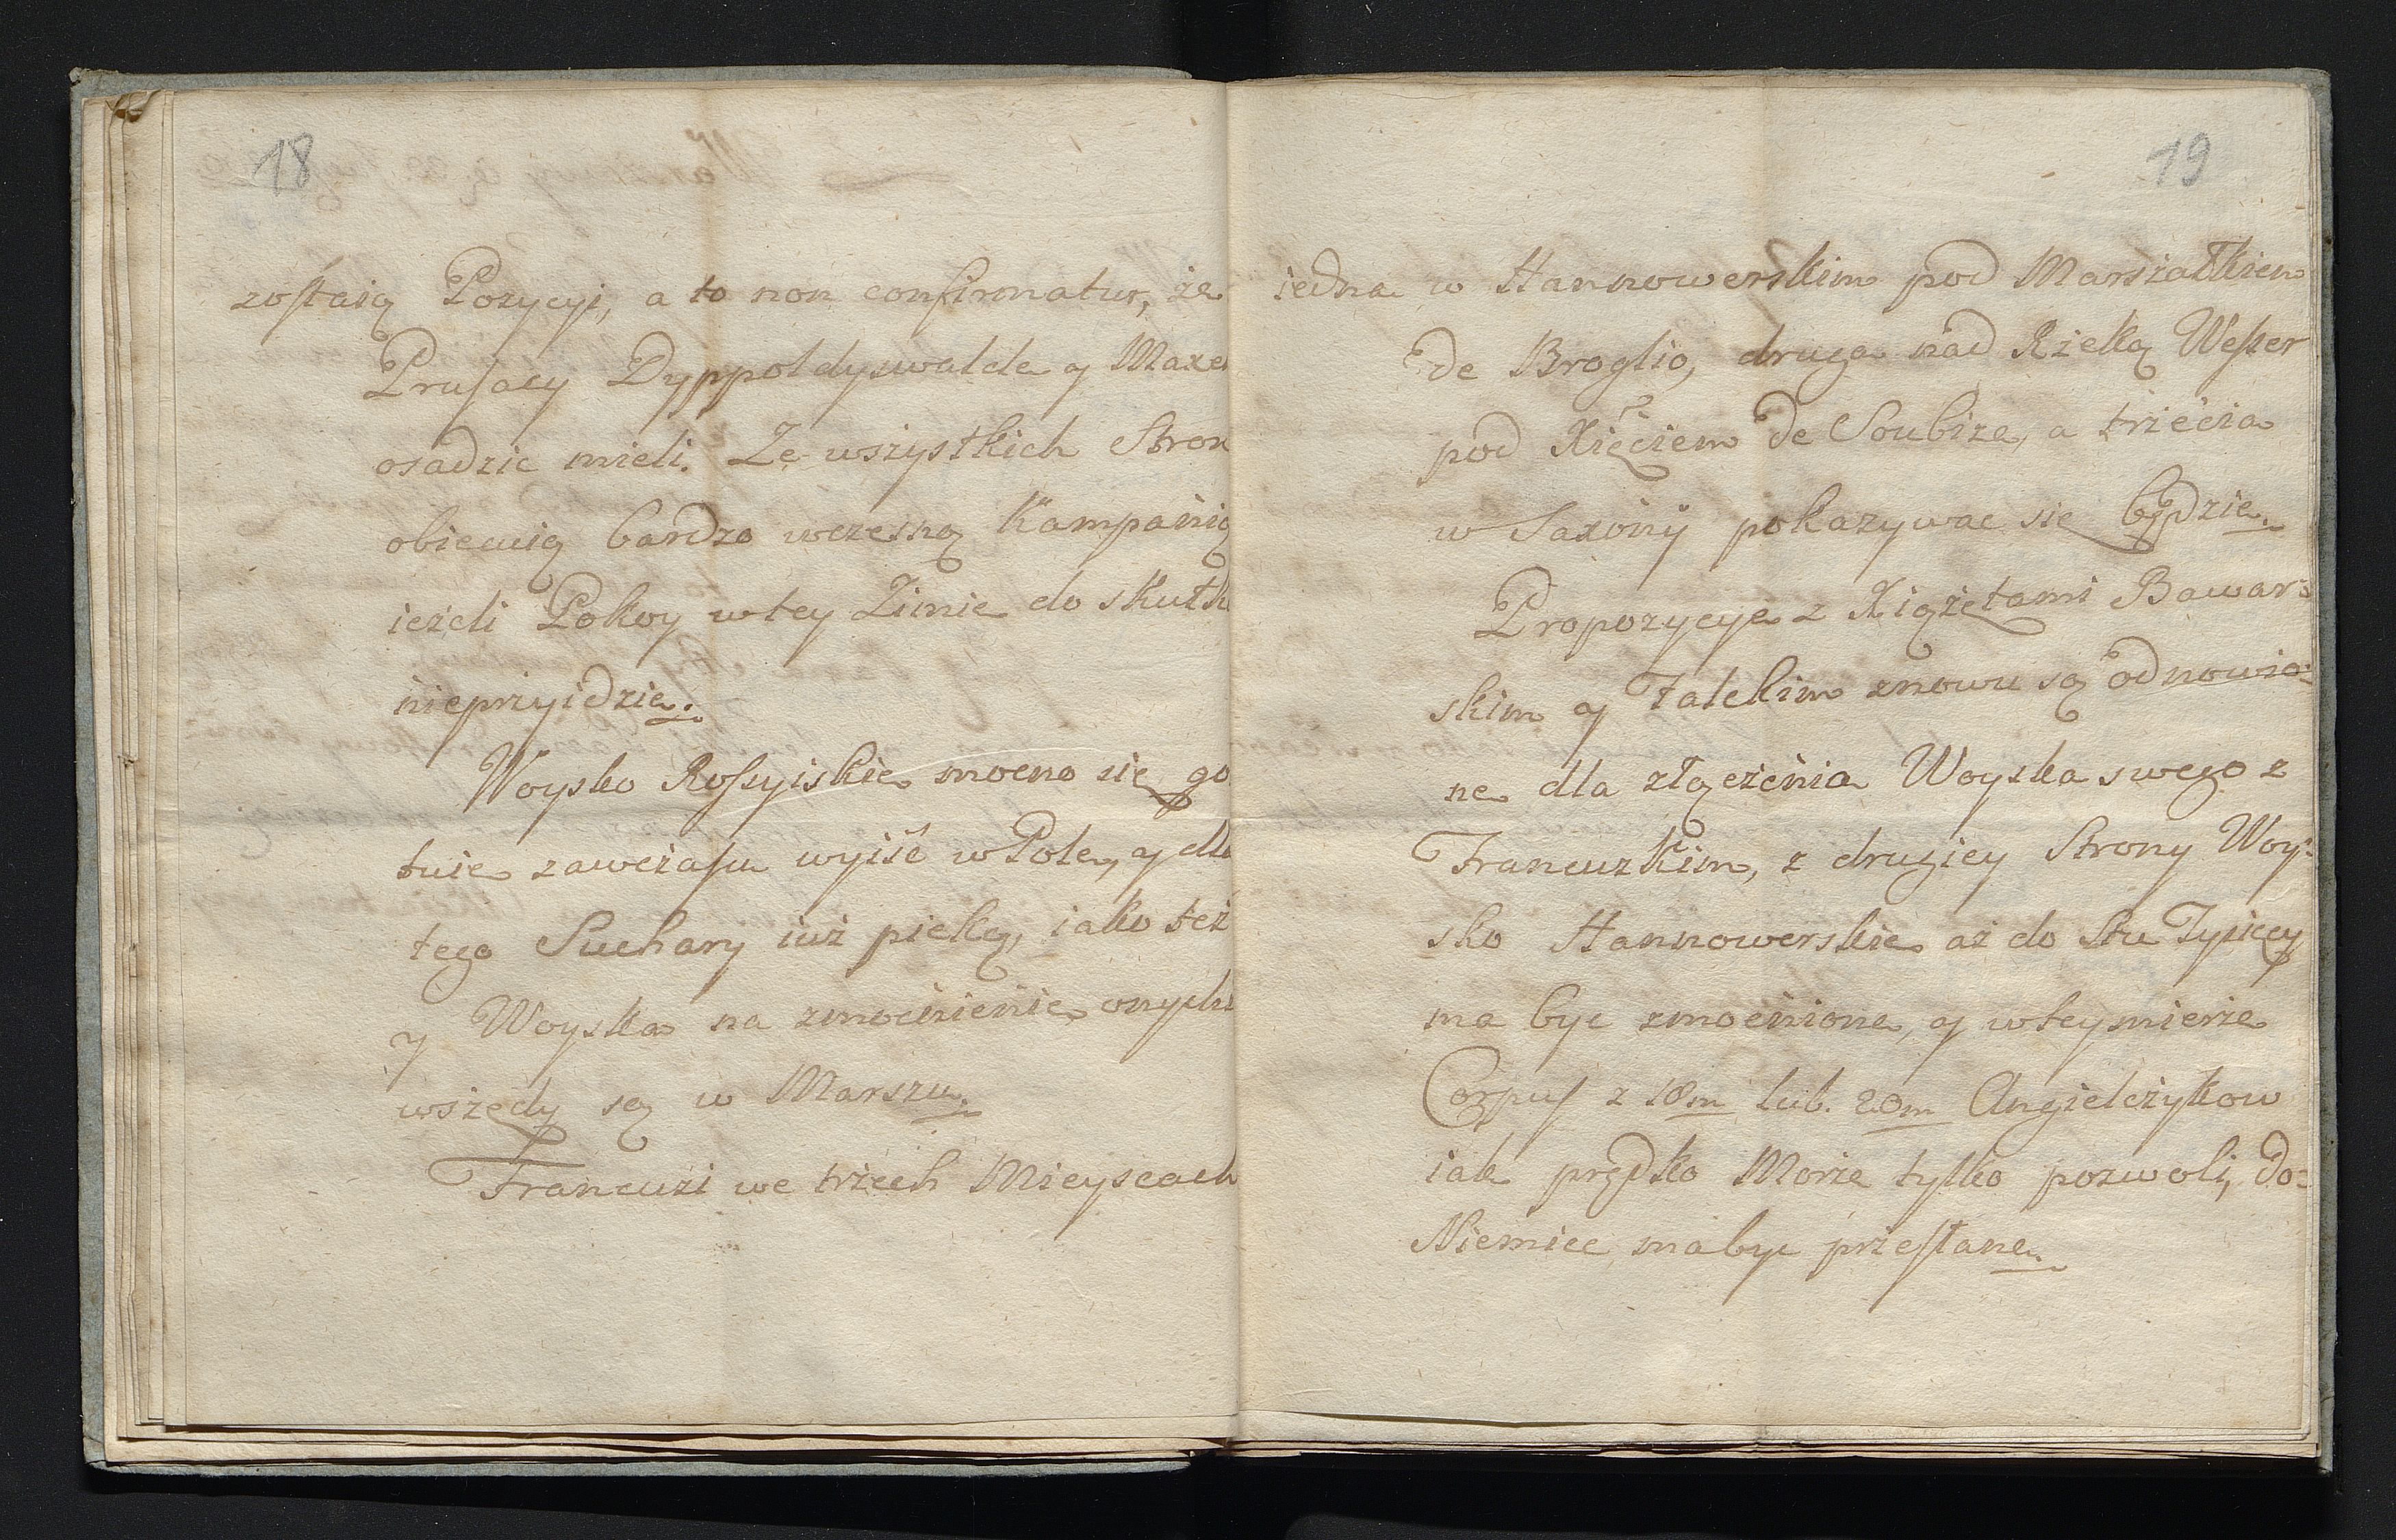 18
zostaią Pozycyi, a to non confirmatur, że
Prusacy Dyppoldyswalde y Maxen
osadzic mieli. Ze wszystkich Stron
obiecuią bardzo wczesną Kampanią
ieżeli Pokoy wtey Zimie do skutku
nieprzyidzie.
Woysko Rossyiskie mocno się go
tuie zawczasu wyiść w Pole, y dla
tego Suchary iuż pieką, iako też
y Woyska na zmocnienie onych
wszędy są w Marszu.
Francuzi we trzech Mieyscach
19
iedna w Hannowerskim pod Marszałkiem
de Broglio, druga nad Rzeką Weser
pod Xięciem de Soubize, a trzecia
w Saxonij pokazywac się będzie.
Propozycye z Xiążętami Bawar=
skim y Falckim znowu są odnowio=
ne dla złączenia Woyska swego z
Francuzkim, z drugiey Strony Woy=
sko Hannowerskie aż do Stu Tysięcy
ma byc zmocnione, y wteymierze
Corpus z 18m lub. 20m Angielczykow
iak prędko Morze tylko pozwoli, do=
Niemiec, mabyc przesłane.